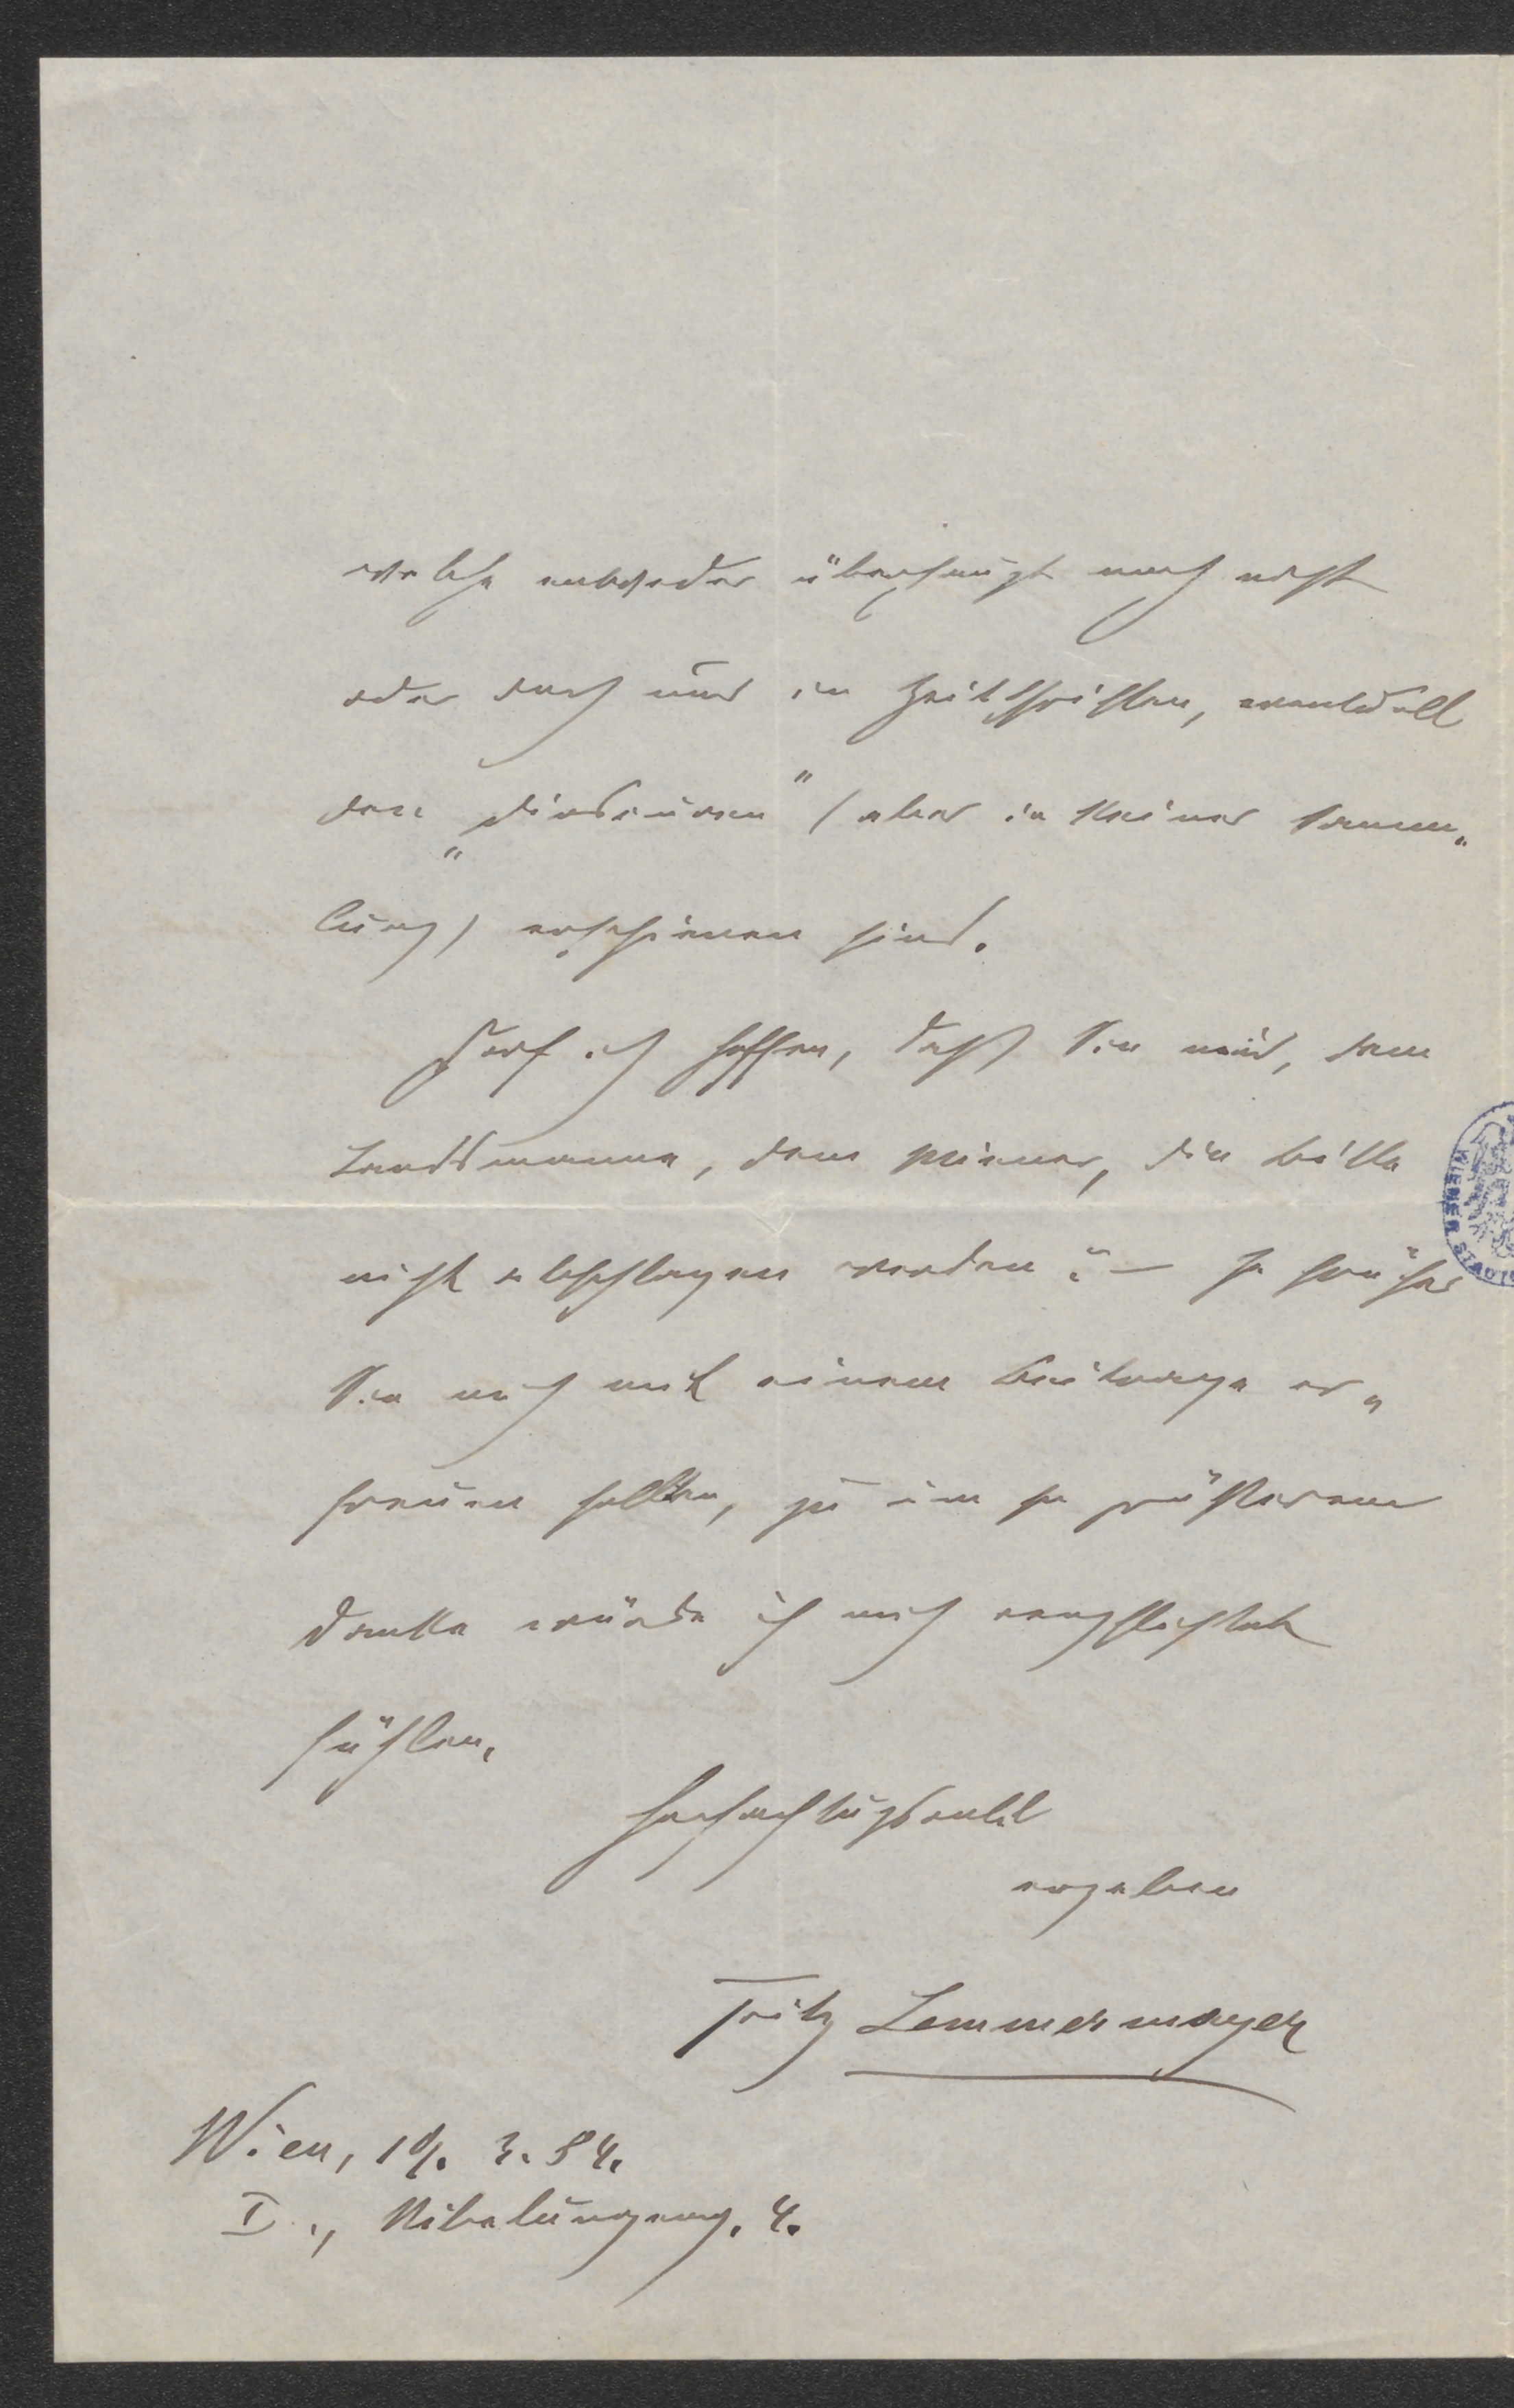 welche entweder überhaupt noch nicht
oder doch nur in Zeitschriften, eventuell
den „Dioskuren" (aber in keiner Samm-
lung) erschienen sind.
Darf ich hoffen, daß Sie mir, dem
Landsmanne, dem Wiener, die Bitte
nicht abschlagen werden? – Je früher
Sie mich mit einem Beitrage er-
freuen sollten, zu um so größerem
Danke würde ich mich verpflichtet
fühlen.
Hochachtungsvoll
ergeben
Fritz Lemmermayer
Wien, 3.84.
I., Nibelungeng. 4.
WIENER STADT